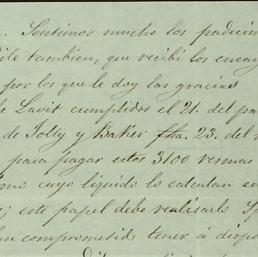 . Sentimos mucho los padecim
ile tambien, que recibí los encar
por los que le doy las gracias
e Lavit cumplidos el 21. del pa
de Jolly y Baker fha. 23. del
para pagar estos 3100 vermas
mo cuyo liquido lo calculan en
; este papel debe realisarlo
an comprometido tener á dispo